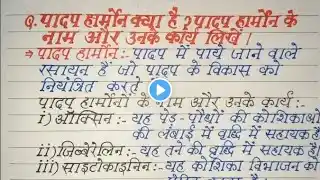 Q. पादप हार्मोन क्या है ? पादप हार्मोन के
नाम और उनके कार्य लिखें।
⇒ पादप हार्मोन :- पादप में पाये जाने वाले
रसायन हैं जो पादप के विकास को
नियंत्रित करते
पादप हार्मोनों के नाम और उनके कार्य :-
i) ऑक्सिन :- यह पेड़-पौधों की कोशिकाओं
की लंबाई में वृद्धि में सहायक है
ii) जिब्बेरेलिन :- यह तने की वृद्धि में सहायक है
iii) साइटोकाइनिन :- यह कोशिका विभाजन को